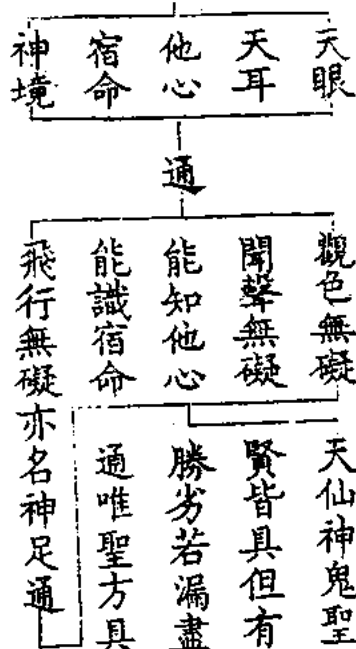 天眼
天耳
他心
宿命
神境
通
觀色無礙
聞聲無礙
能知他心
能識宿命
飛行無礙亦名神足通
天仙神鬼聖
賢皆具但有
勝劣若漏盡
通唯聖方具